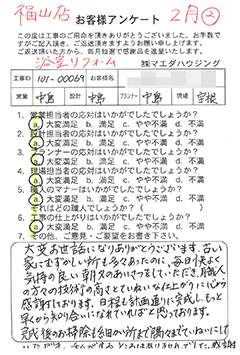 福山店
2月②
お客様アンケート
この度は工事のご用命を頂きありがとうございました。お手数で
すがご記入頂き、ご返送頂きますようお願い申し上げます。
ご返送頂きましたら、毎月抽選で感謝品を進呈いたします。
浴室リフォーム
㈱マエダハウジング
工事ID 101-00069 お客様名
営業 中島 設計 中島 プランナー 中島 現場
1. 営業担当者の応対はいかがでしたでしょうか?
a.大変満足 b.満足 c.やや不満 d.不満
2. 設計担当者の応対はいかがでしたでしょうか?
a.大変満足 b.満足 c.やや不満 d.不満
3. プランナーの応対はいかがでしたでしょうか?
a.大変満足 b.満足 c.やや不満 d.不満
4. 現場担当者の応対はいかがでしたでしょうか?
a.大変満足 b.満足 c.やや不満 d.不満
5. 職人のマナーはいかがでしたでしょうか?
a.大変満足 b.満足 c.やや不満 d.不満
それはどの職人でしょうか?( )
6. 工事の仕上がりはいかがでしたでしょうか?
a.大変満足 b.満足 c.やや不満 d.不満
7. その他、ご意見・ご要望をお書き下さい。
大変お世話になりありがとうございます。古い
家にてむずかしい所も多々あったのに、毎日休まく
気持の良い朝夕のあいさつをしていただき、職人
の方々の技術の高さとていねいな仕上がりに心から
感謝しております。日程も計画通りに完成し、もっと
早くから知り合いになれていればと思っております。
完成後のお掃除も細かい所まで隅々までていねいにして